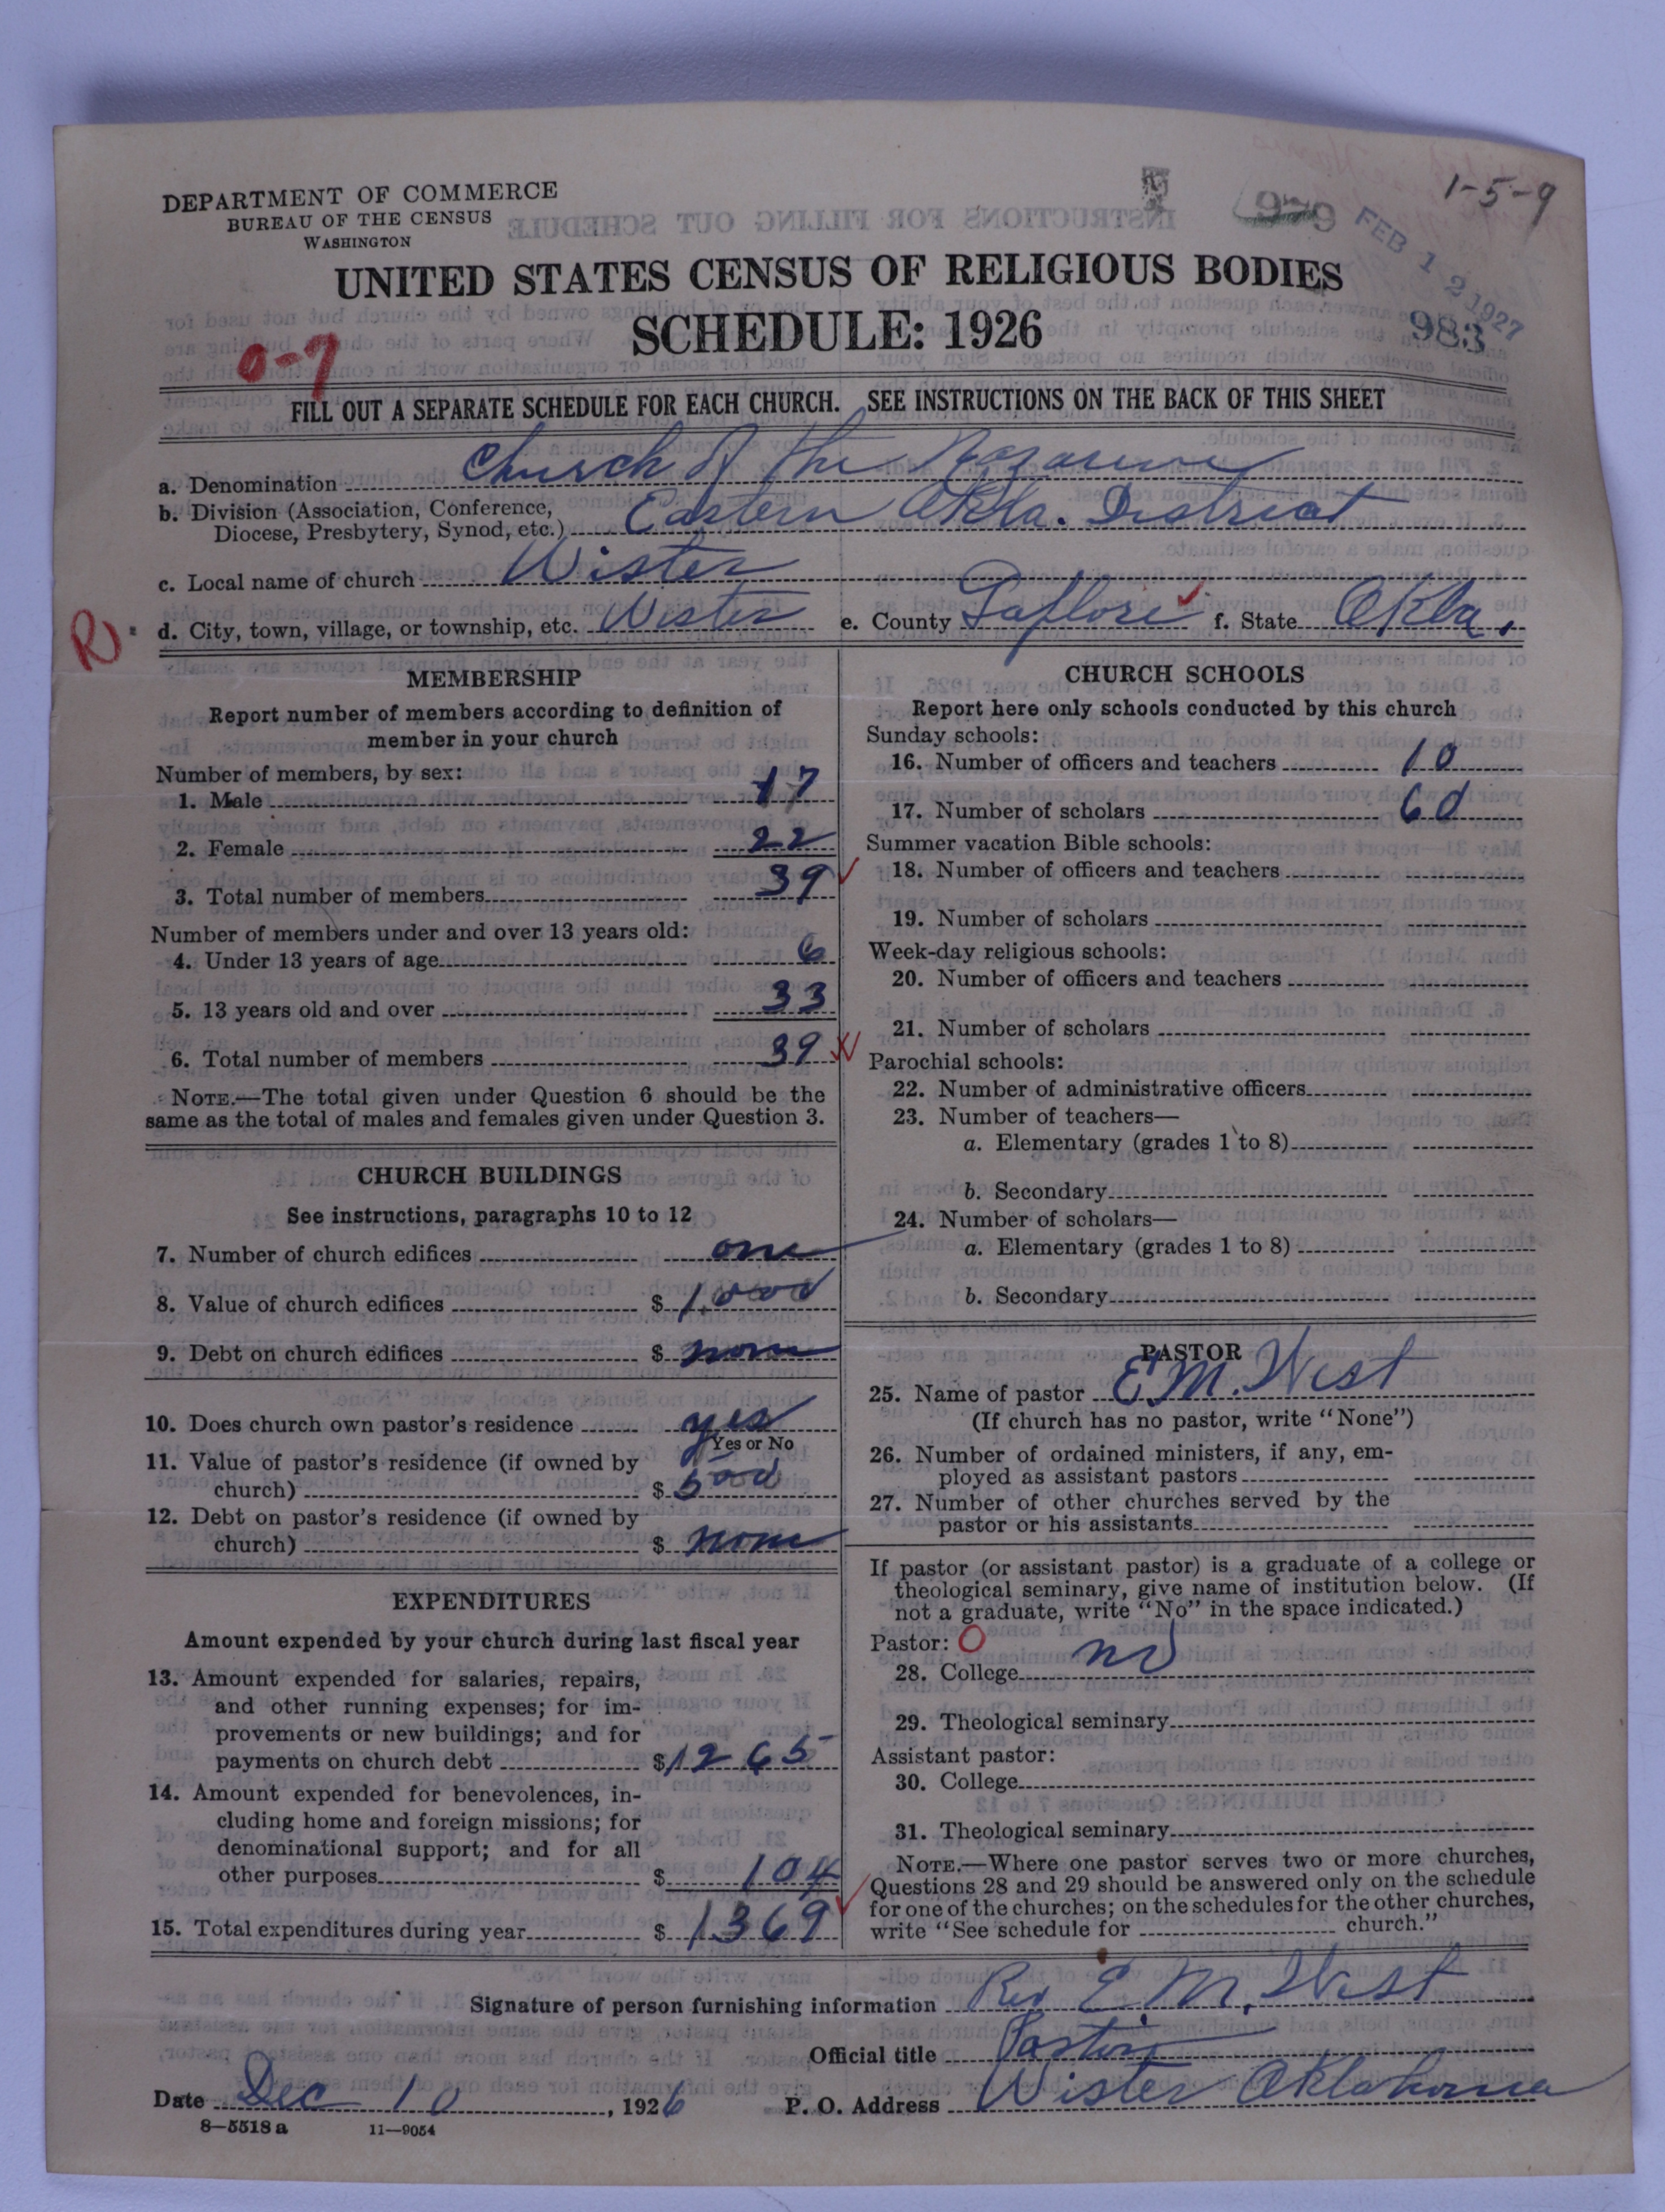 DEPARTMENT OF COMMERCE
BUREAU OF THE CENSUS
WASHINGTON
1-5-9
979
FEB 12 1927
983
UNITED STATES CENSUS OF RELIGIOUS BODIES
SCHEDULE: 1926
0-7
FILL OUT A SEPARATE SCHEDULE FOR EACH CHURCH. SEE INSTRUCTIONS ON THE BACK OF THIS SHEET
a. Denomination Church of the Nazarene
b. Division (Association, Conference,
Diocese, Presbytery, Synod, etc.) Eastern Okla. District
c. Local name of church Wister
R
d. City, town, village, or township, etc. Wister e. County Laflore f. State Okla.
MEMBERSHIP
Report number of members according to definition of
member in your church
Number of members, by sex:
1. Male 17
2. Female 22
3. Total number of members 39
Number of members under and over 13 years old:
4. Under 13 years of age 6
5. 13 years old and over 33
6. Total number of members 39
NOTE.—The total given under Question 6 should be the
same as the total of males and females given under Question 3.
CHURCH BUILDINGS
See instructions, paragraphs 10 to 12
7. Number of church edifices one
8. Value of church edifices $ 1,000
9. Debt on church edifices $ none
10. Does church own pastor's residence yes
Yes or No
11. Value of pastor's residence (if owned by
church) $ 500
12. Debt on pastor's residence (if owned by
church) $ none
EXPENDITURES
Amount expended by your church during last fiscal year
13. Amount expended for salaries, repairs,
and other running expenses; for im-
provements or new buildings; and for
payments on church debt $ 1265
14. Amount expended for benevolences, in-
cluding home and foreign missions; for
denominational support; and for all
other purposes $ 104
15. Total expenditures during year $ 1369
CHURCH SCHOOLS
Report here only schools conducted by this church
Sunday schools:
16. Number of officers and teachers 10
17. Number of scholars 60
Summer vacation Bible schools:
18. Number of officers and teachers
19. Number of scholars
Week-day religious schools:
20. Number of officers and teachers
21. Number of scholars
Parochial schools:
22. Number of administrative officers
23. Number of teachers—
a. Elementary (grades 1 to 8)
b. Secondary
24. Number of scholars—
a. Elementary (grades 1 to 8)
b. Secondary
PASTOR
25. Name of pastor E M. West
(If church has no pastor, write "None")
26. Number of ordained ministers, if any, em-
ployed as assistant pastors
27. Number of other churches served by the
pastor or his assistants
If pastor (or assistant pastor) is a graduate of a college or
theological seminary, give name of institution below. (If
not a graduate, write "No" in the space indicated.)
Pastor: O
28. College no
29. Theological seminary
Assistant pastor:
30. College
31. Theological seminary
NOTE.—Where one pastor serves two or more churches,
Questions 28 and 29 should be answered only on the schedule
for one of the churches; on the schedules for the other churches,
write "See schedule for church."
Signature of person furnishing information Rev E M. West
Official title Pastor
Date Dec 10, 1926 P. O. Address Wister Oklahoma
8—5518 a 11—9054